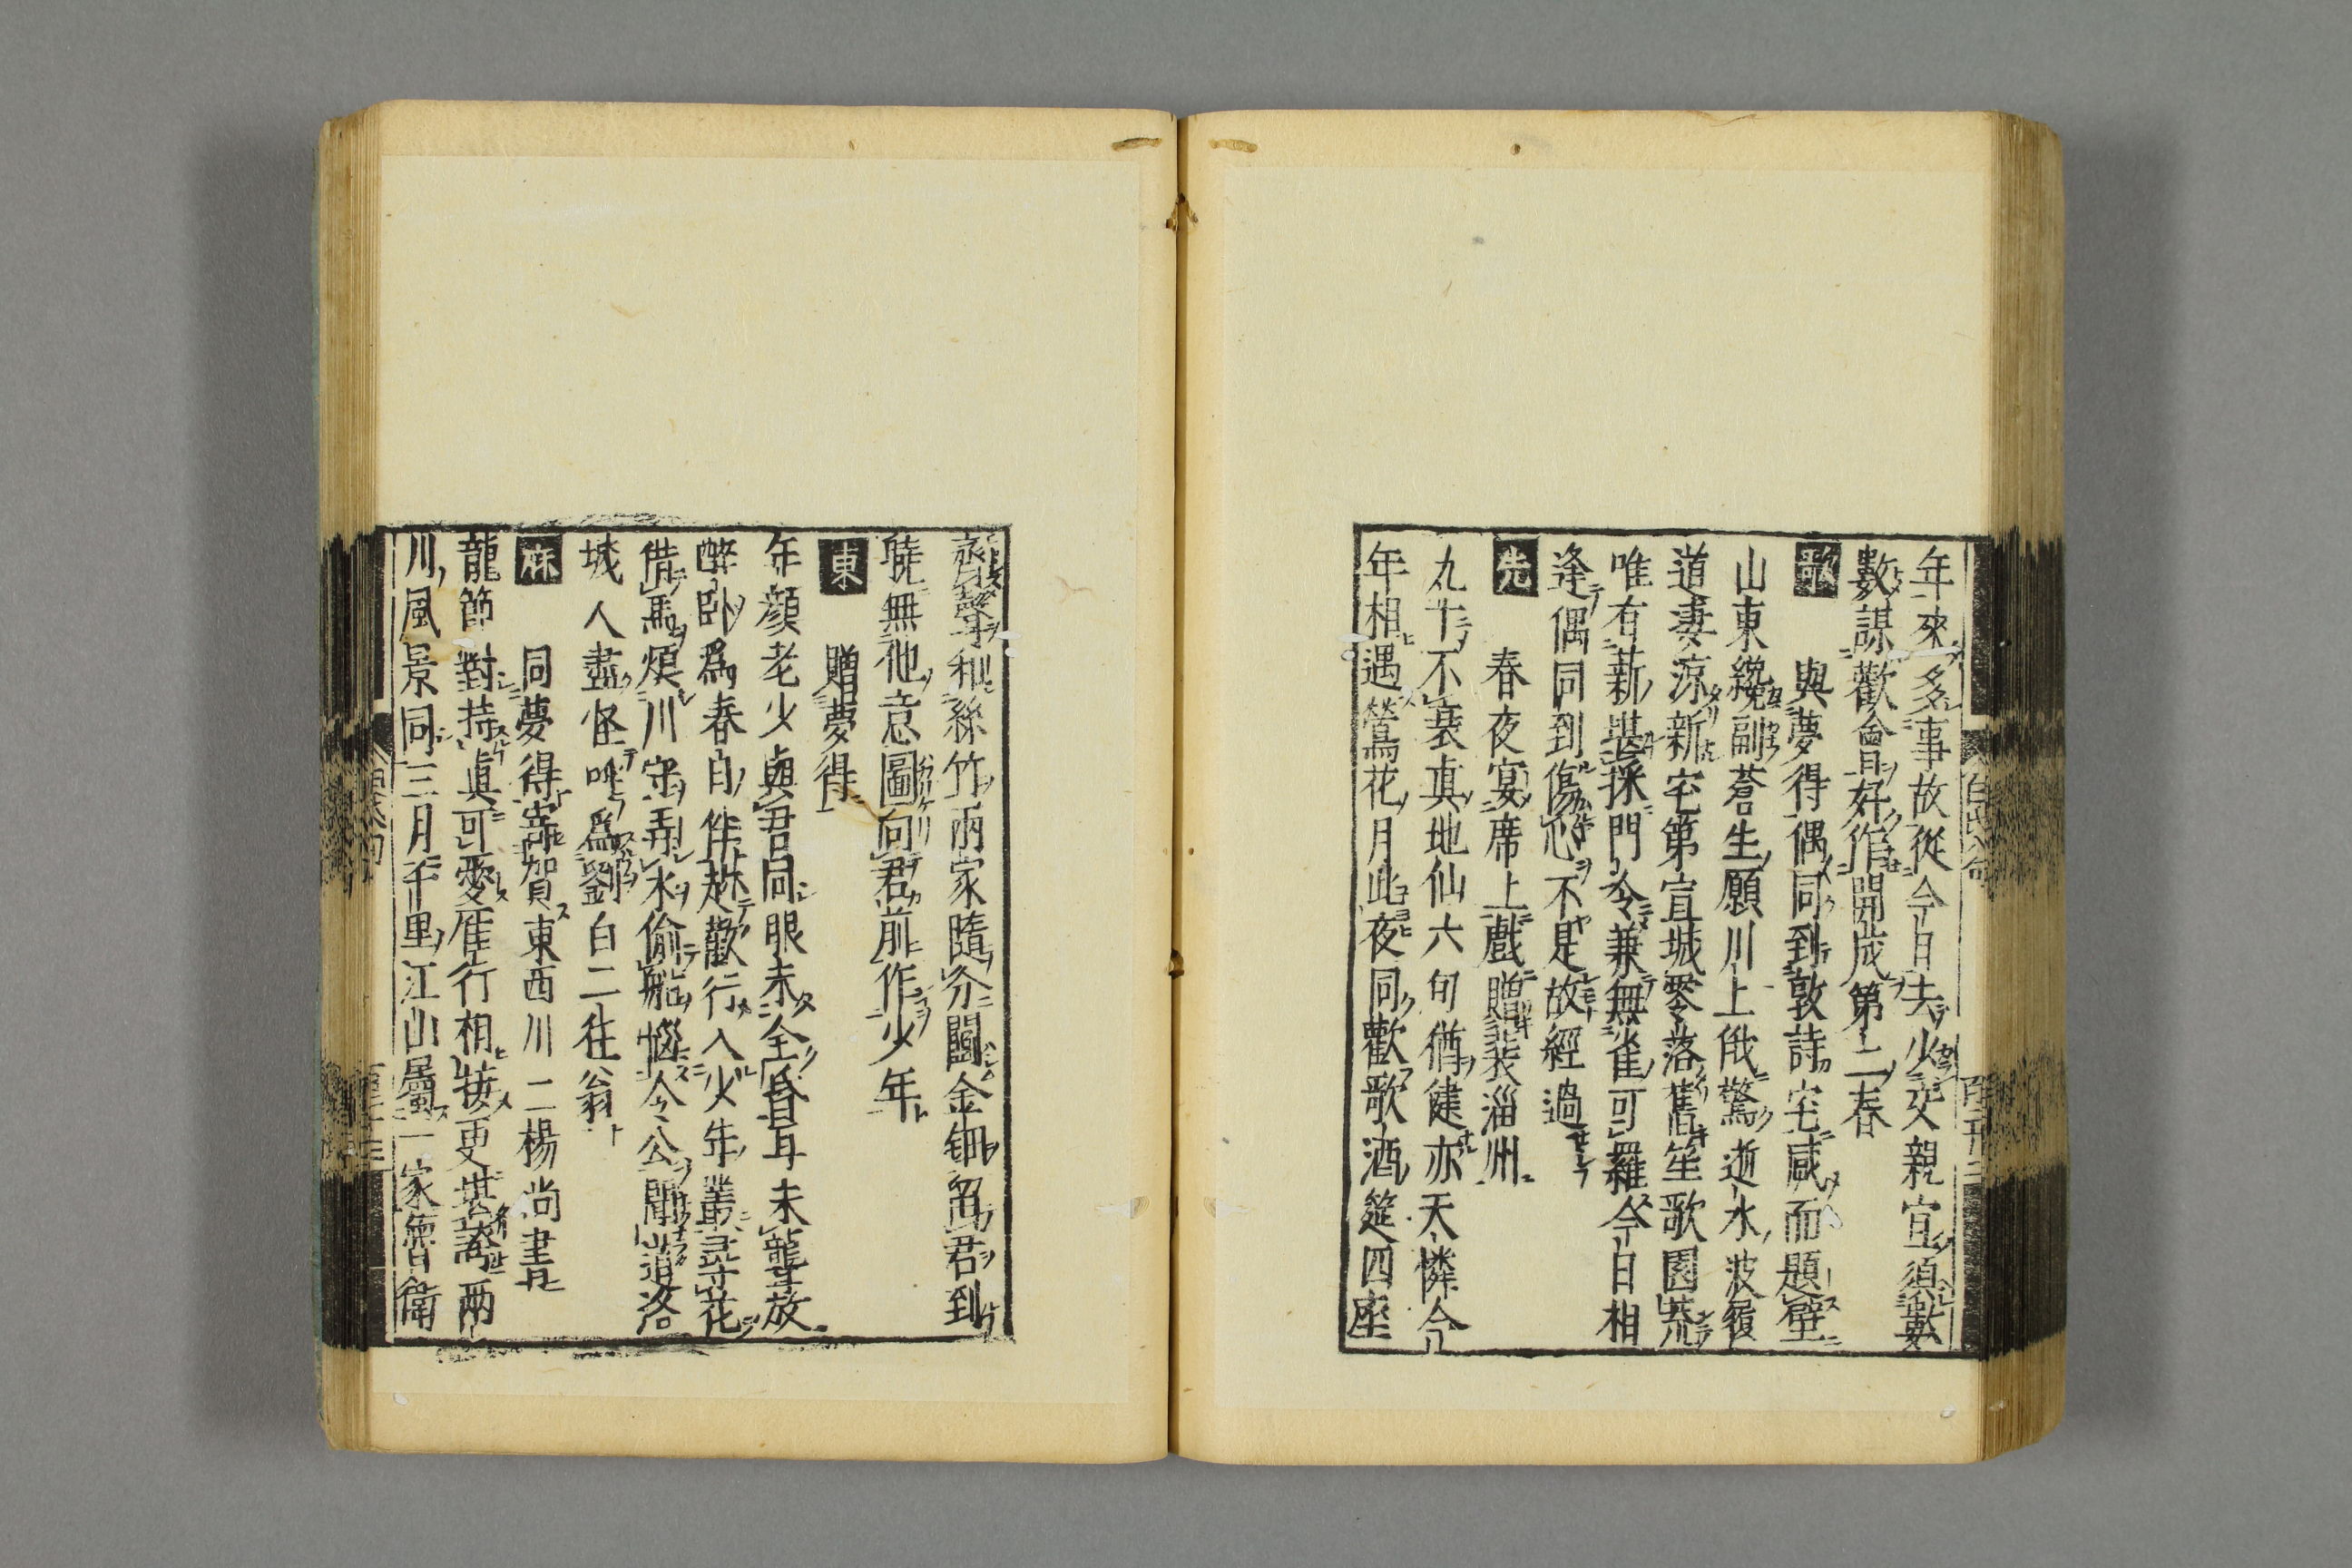 年來多事故從今日去少交親宜須數
數謀歡會好作開成第二春
歌 與夢得偶同到敦詩宅感而題壁
山東纔副蒼生願川上俄驚逝水波履
道凄涼新宅第宣城零落舊笙歌園荒
唯有薪堪採門冷兼無雀可羅今日相
逢偶同到傷心不是故經過
先 春夜宴席上戲贈裴淄州
九十不衰真地仙六旬猶健亦天憐今
年相遇鶯花月此夜同歡歌酒筵四座
齊聲和絲竹兩家隨分鬪金鈿留君到
曉無他意圖向君前作少年
東 贈夢得
年顏老少與君同眼未全昏耳未聾放
醉臥為春日伴趁歡行入少年叢尋花
借馬煩川守弄水偷船惱令公聞道洛
城人盡怪呼為劉白二狂翁
麻 同夢得寄賀東西川二楊尚書
龍節對持真可愛雁行相接更堪誇兩
川風景同三月千里江山屬一家魯衛